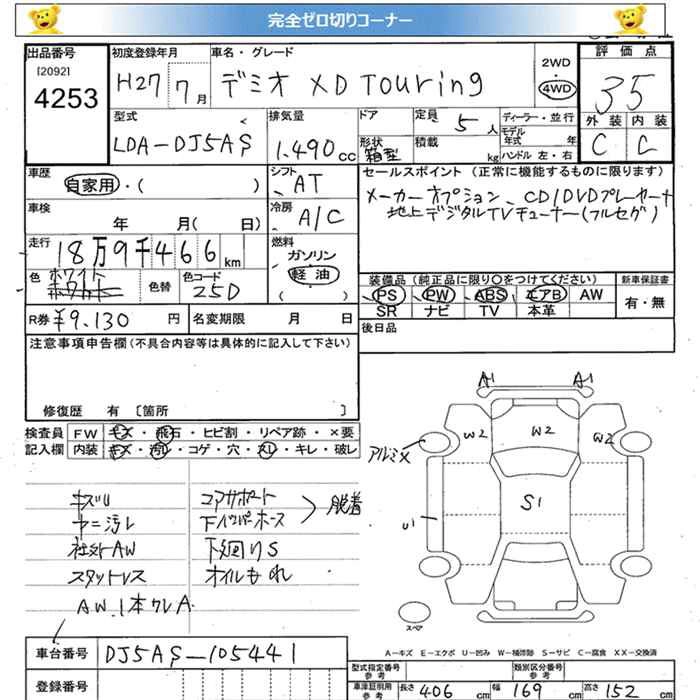 完全ゼロ切りコーナー
出品番号
[2092]
4253
初度登録年月
H27 7月
車名・グレード
デミオ XD Touring
2WD
4WD
評価点
35
外装 内装
C C
型式
LDA-DJ5AS
排気量
1.490cc
ドア
形状
箱型
定員
5人
積載
kg
ディーラー・並行
モデル年式 年
ハンドル 左・右
車歴
自家用・( )
シフト
AT
セールスポイント (正常に機能するものに限ります)
メーカーオプション、CD/DVDプレーヤー+
地上デジタルTVチューナー(フルセグ)
車検
年 月( 日)
冷房
A/C
走行
18万9千466km
燃料
ガソリン
軽油
( )
色
ホワイト
色替
色コード
25D
装備品 (純正品に限り○をつけてください)
新車保証書
PS PW ABS エアB AW
SR ナビ TV 本革
有・無
R券 ¥9.130 円
名変期限 月 日
後日品
注意事項申告欄(不具合内容等は具体的に記入して下さい)
修復歴 有 [箇所 ]
検査員
記入欄
FW キズ・飛石・ヒビ割・リペア跡・×要
内装 キズ・汚レ・コゲ・穴・スレ・キレ・破レ
キズU
ヤニ汚レ
社外AW
スタットレス
A.W.1本クレA.
コアサポート
下インパーホース
脱着
下廻りS
オイルもれ
A1 A1
W2 W2 W2
アルミX
S1
U1
スペア
A-キズ E-エクボ U-凹み W-補修跡 S-サビ C-腐食 XX-交換済
車台番号 DJ5AS-105441
登録番号
型式指定番号
参考
類別区分番号
参考
車庫証明用
参考
長さ 406cm 幅 169cm 高さ 152cm